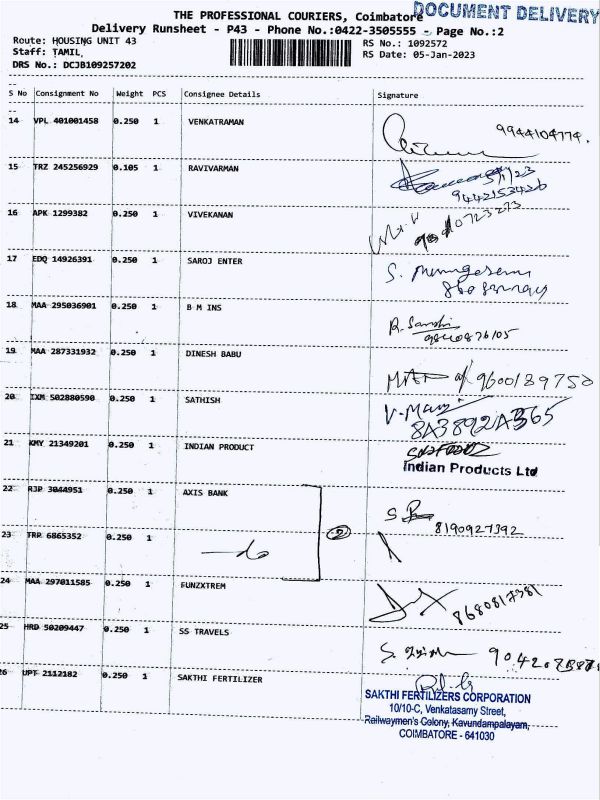 THE PROFESSIONAL COURIERS, Coimbatore
DOCUMENT DELIVERY
Delivery Runsheet - P43 - Phone No.:0422-3505555 - Page No.:2
Route: HOUSING UNIT 43
RS No.: 1092572
Staff: TAMIL,
RS Date: 05-Jan-2023
DRS No.: DCJB109257202
S No Consignment No Weight PCS Consignee Details Signature
14 VPL 401001458 0.250 1 VENKATRAMAN 9944104774.
15 TRZ 245256929 0.105 1 RAVIVARMAN
9442153426
16 APK 1299382 0.250 1 VIVEKANAN
17 EDQ 14926391 0.250 1 SAROJ ENTER
18 MAA 295036901 0.250 1 B M INS
19 MAA 287331932 0.250 1 DINESH BABU
9600189750
20 IXM 502880590 0.250 1 SATHISH
21 KMY 21349201 0.250 1 INDIAN PRODUCT
Indian Products Ltd
22 RJP 3044951 0.250 1 AXIS BANK
8190927392
23 TRP 6865352 0.250 1
24 MAA 297011585 0.250 1 FUNZXTREM
8680817381
25 HRD 50209447 0.250 1 SS TRAVELS
26 UPT 2112182 0.250 1 SAKTHI FERTILIZER
SAKTHI FERTILIZERS CORPORATION
10/10-C, Venkatasamy Street,
Railwaymen's Colony, Kavundampalayam,
COIMBATORE - 641030